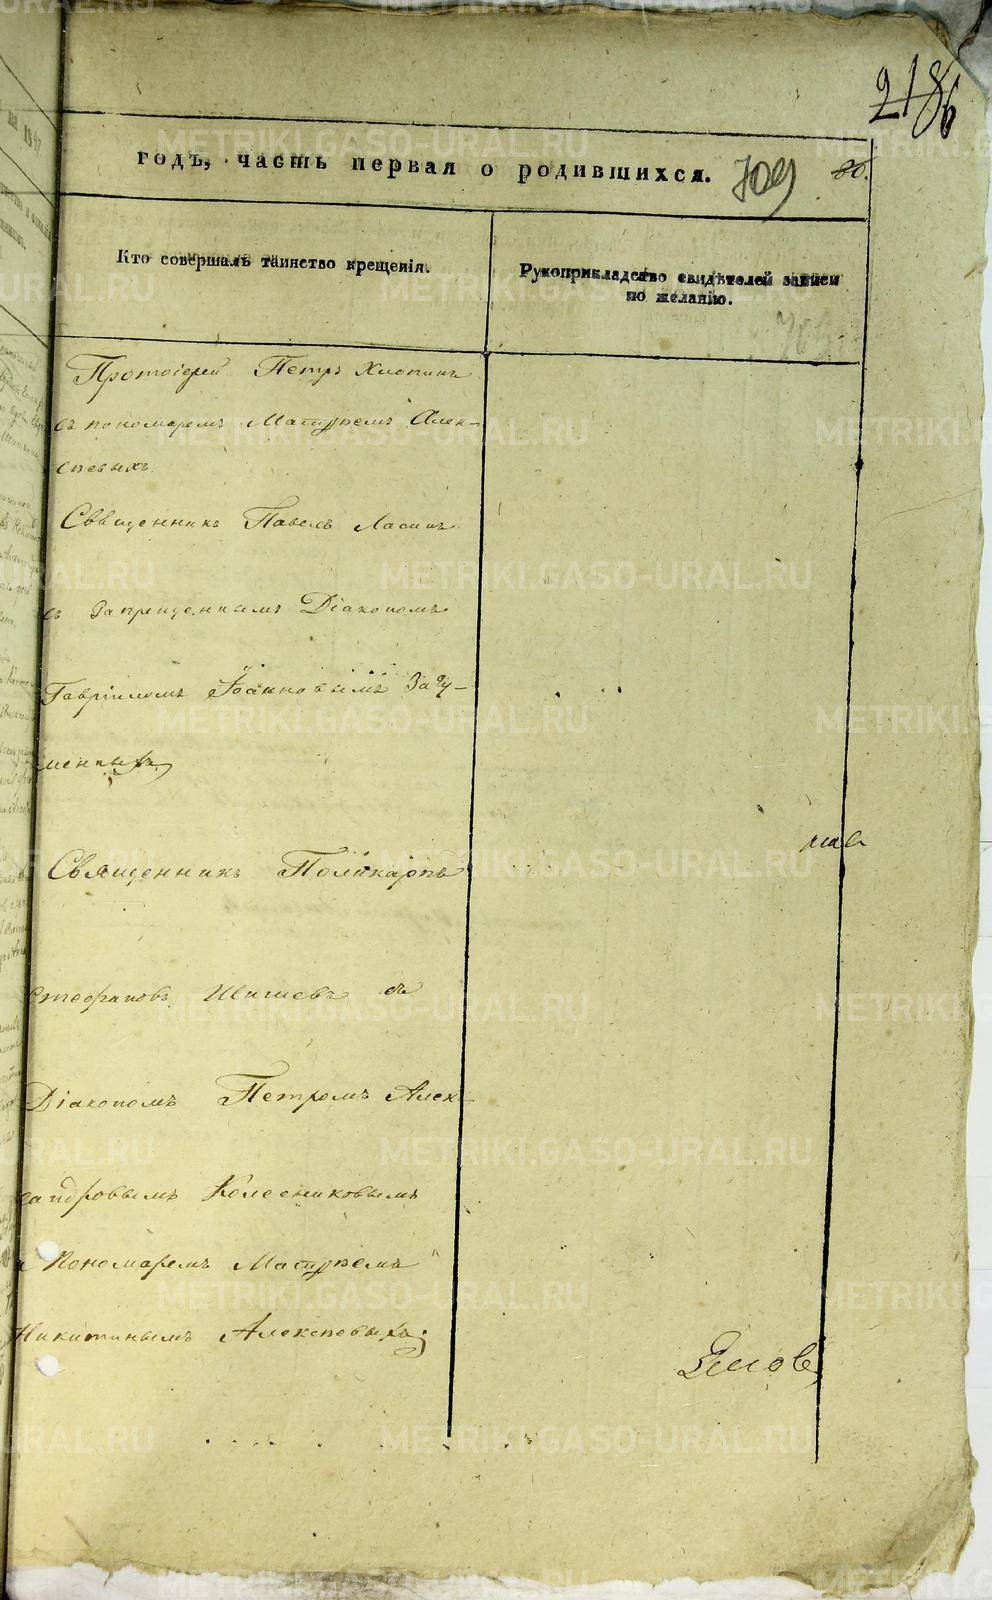 218б
годъ, часть первая о родившихся. 709 80.
Кто совершалъ таинство крещенія.
Рукоприкладство свидѣтелей записи
по желанію.
Протоіерей Петръ Хлопинъ
съ пономаремъ Матѳѣемъ Алек-
сѣевыхъ
Священникъ Павелъ Ласинъ
съ Запрещеннымъ Діакономъ
Гавріиломъ Іоанновымъ Загу-
менныхъ
Священникъ Поликарпъ
Стефановъ Шишевъ съ
Діакономъ Петромъ Алек
сандровымъ Колесниковымъ
и Пономаремъ Матѳѣемъ
Никитинымъ Алексѣевыхъ;
METRIKI.GASO-URAL.RU